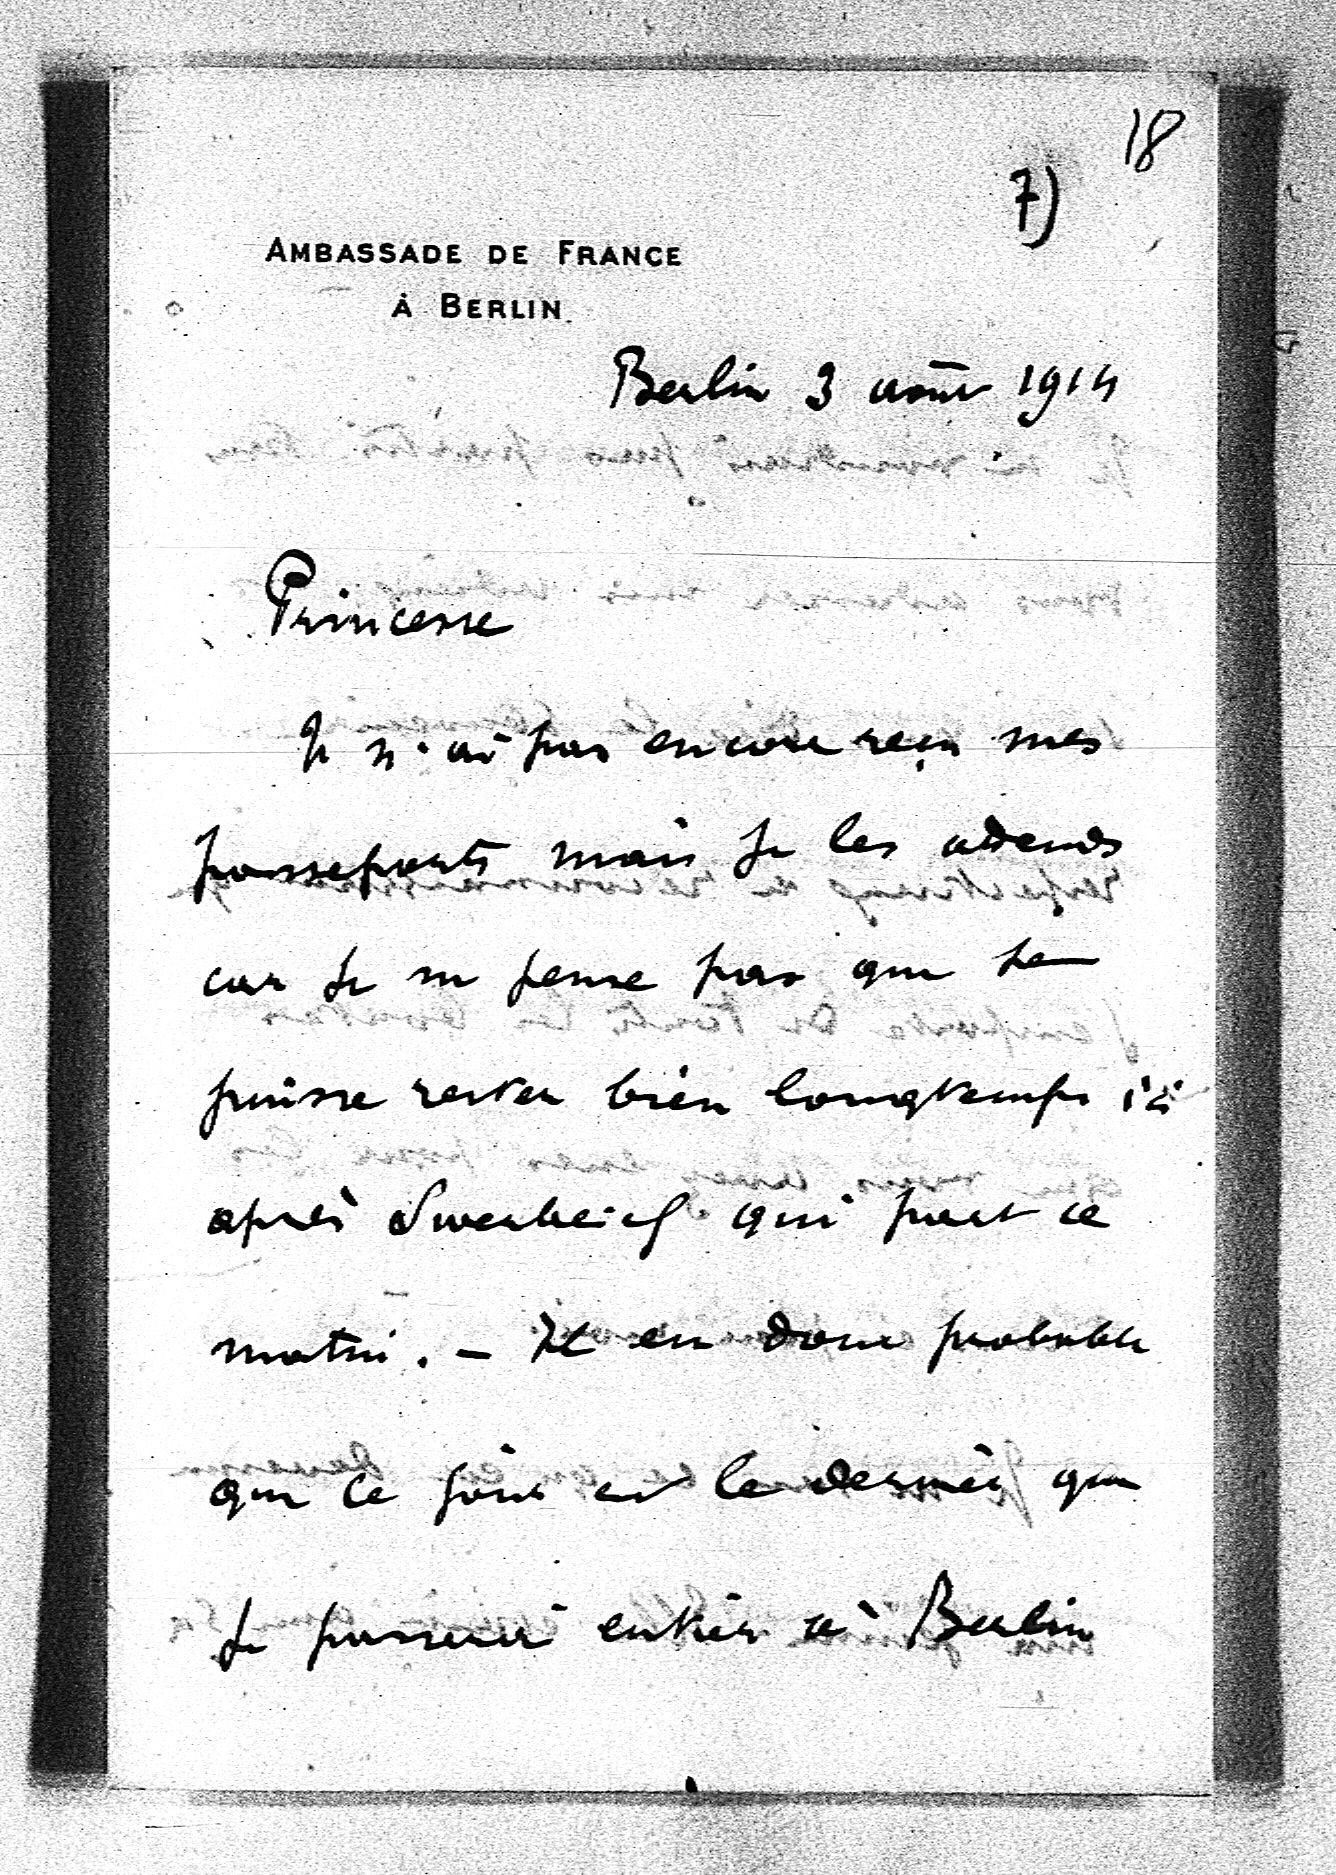 18
7)
AMBASSADE DE FRANCE
À BERLIN
Berlin 3 août 1914
Princesse
Je n'ai pas encore reçu mes
passeports mais je les attends
car je ne pense pas que je
puisse rester bien longtemps ici
après Swerbeief qui part ce
matin. — Il est donc probable
que ce jour est le dernier que
je passerai entier à Berlin